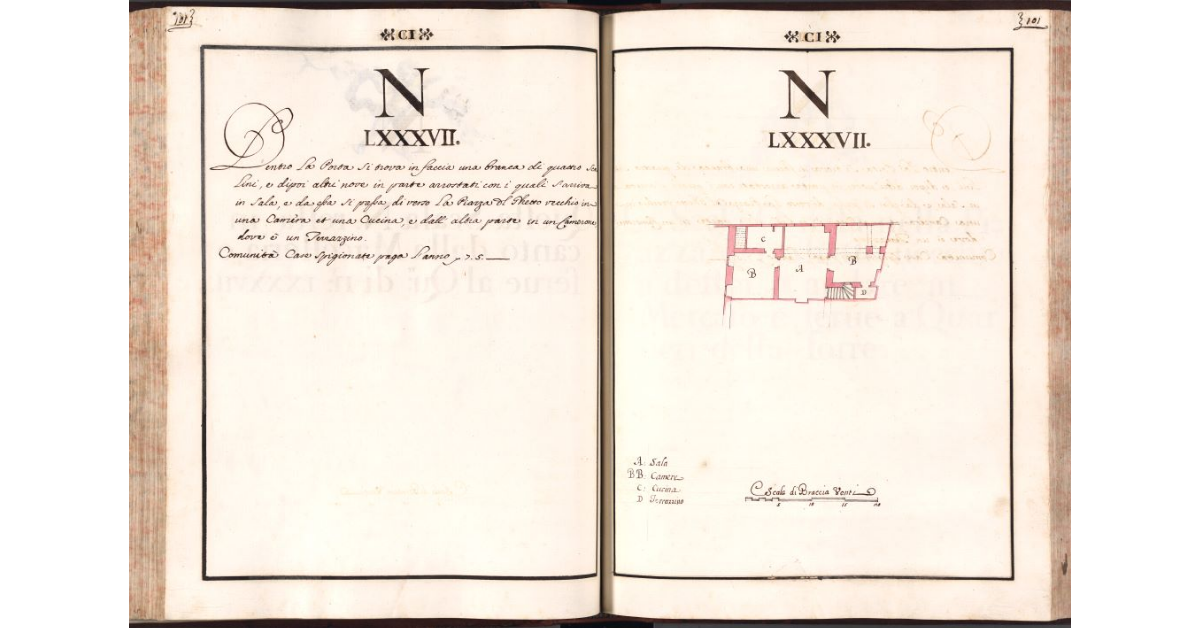 101
CI
N
LXXXVII.
Dentro La Porta Si trova in faccia una branca di quattro Sca
Lini, e dipoi altri nove in parte arrostati con i quali S'arriva
in Sala, e da essa Si passa, di verso La Piazza del Ghetto vecchio in
una Camera et una Cucina, e dall' altra parte in un Camerone
dove è un Terrazzino.
Comunità Case Spigionate paga L'anno 7.5.
101
CI
N
LXXXVII.
C
B
A
B
D
A: Sala
BB: Camere
C: Cucina
D Terrazzino
Scala di Braccia Venti
5 10 15 20